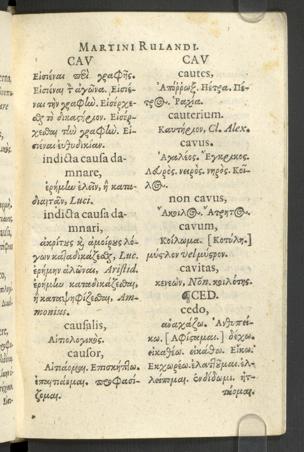 MARTINI RULANDI.
CAV
Εἰσιέναι περὶ γραφῆς.
Εἰσιέναι τ ἀγῶνα. Εἰσιέ-
ναι τὴν γραφὴν. Εἰσέρχε-
σθαι τὸ δικαστήριον. Εἰσέρ-
χεσθαι τὴν γραφὴν. Εἰ-
σιέναι εὐθυδικίαν.
indicta causa da-
mnare,
ἐρήμην ἑλεῖν, ἢ κατα-
διαιτᾶν, Luci.
indicta causa da-
mnari,
ἀκρίτως κ ἀμοίρως λό-
γων καταδικάζεσθαι, Luc.
ἐρήμην ἁλῶναι, Aristid.
ἐρήμην καταδικάζεσθαι,
ἢ καταψηφίζεσθαι, Am-
monius.
causalis,
Αἰτιολογικός.
causor,
Αἰτιάομαι. Ἐπισκήπτω.
ἐπαιτιάομαι. προφασί-
ζομαι.
CAV
cautes,
Ἀπόρρωξ. Πέτρα. Πέ-
τρος. Ῥαχία.
cauterium.
Καυτήριον, Cl. Alex.
cavus.
νειρός. νηρός. Κοῖ-
λος.
non cavus,
Ἄκοιλος. Ἄτρητος.
cavum,
Κοίλωμα. [Κοτύλη.]
μύςλον vel μύςρον.
cavitas,
κενεών, Non. κοιλότης.
¶CED.
cedo,
ἀναχάζω. Ἀνθυπεί-
κω. [Ἀφίσταμαι.] δέχω.
εἰκαθέω. εἰκάθω. Εἴκω.
Ἐκχωρέω. ἐλαττοῦμαι. ἐλ-
λείπομαι. ἐνδίδωμι. ἡτ-
τάομαι.